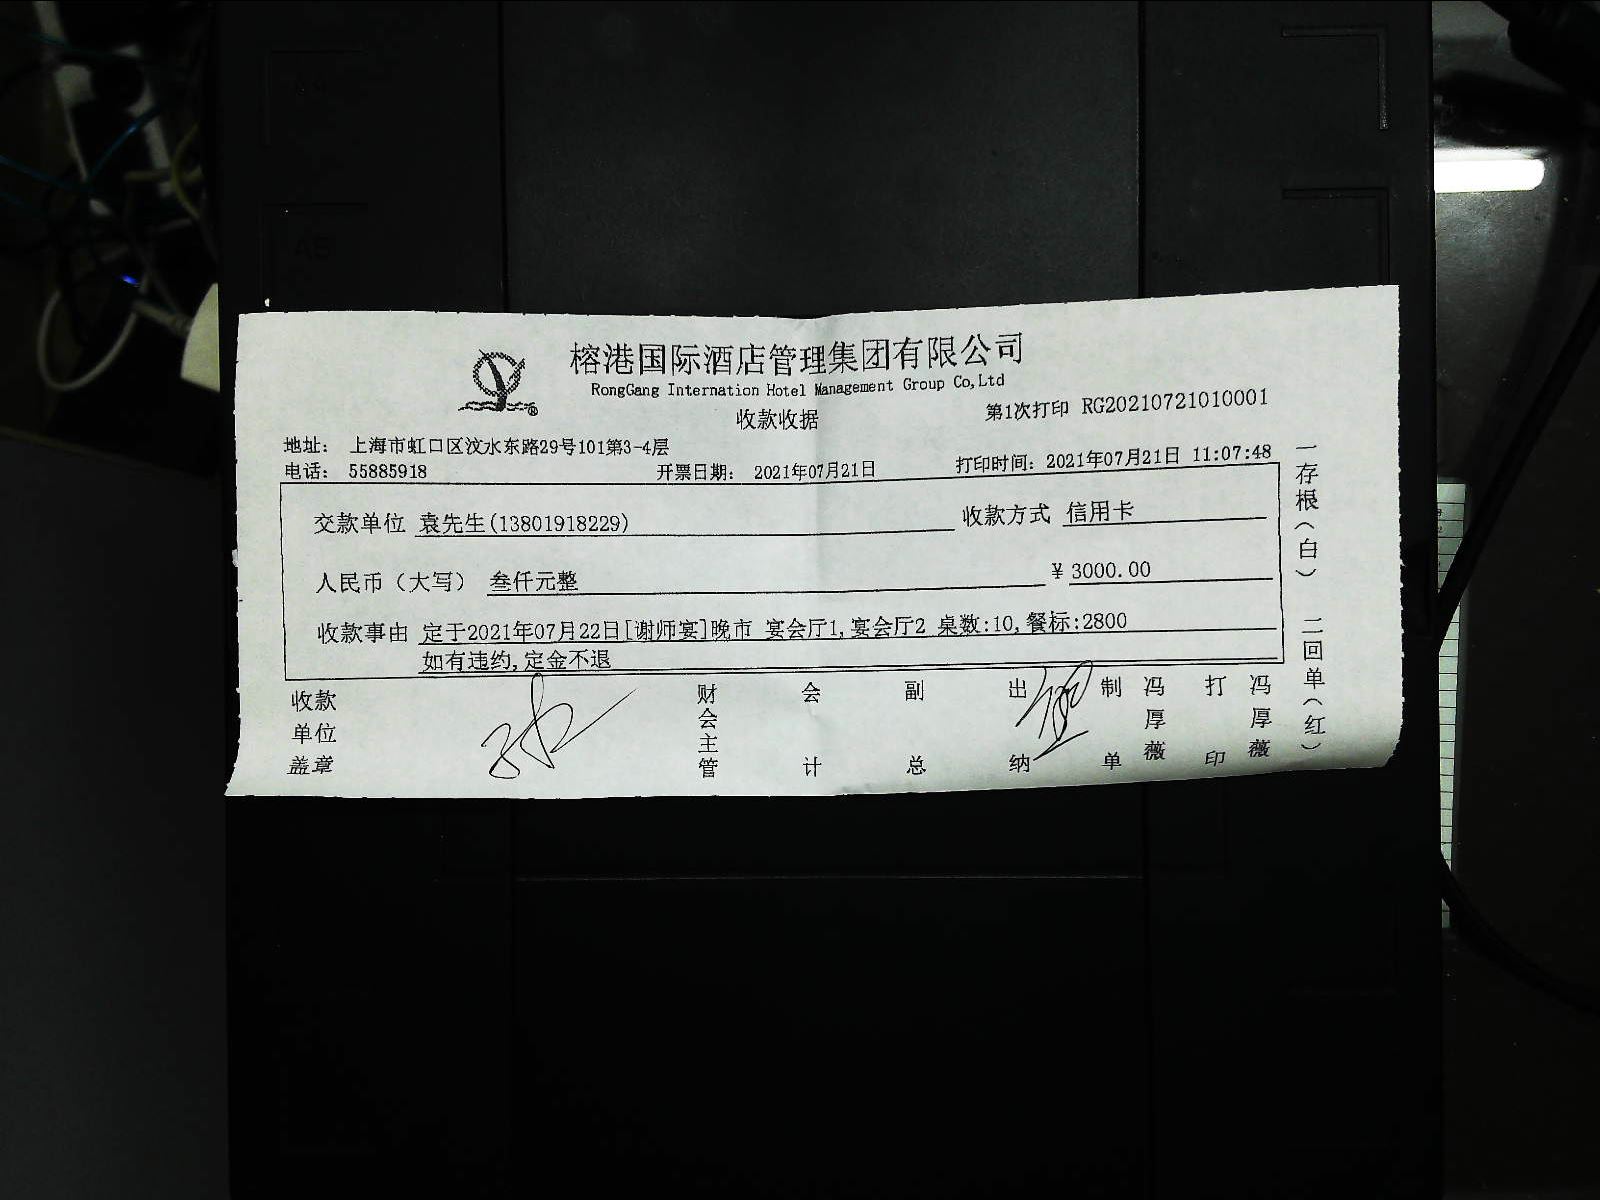 榕港国际酒店管理集团有限公司
RongGang Internation Hotel Management Group Co,Ltd
收款收据
第1次打印 RG20210721010001
地址: 上海市虹口区汶水东路29号101第3-4层
电话: 55885918 开票日期: 2021年07月21日 打印时间: 2021年07月21日 11:07:48
交款单位 袁先生(13801918229) 收款方式 信用卡
人民币（大写） 叁仟元整 ￥3000.00
收款事由 定于2021年07月22日[谢师宴]晚市 宴会厅1,宴会厅2 桌数:10,餐标:2800
如有违约,定金不退
收款单位盖章
财会主管
会计
副总
出纳
制单
冯厚薇
打印
冯厚薇
一存根（白） 二回单（红）
A5